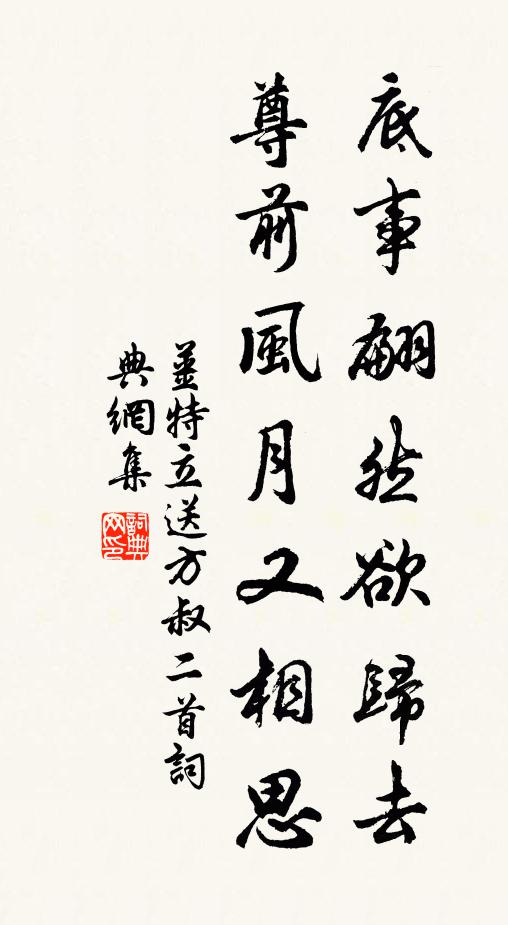 底事翩然欲歸去
尊前風月又相思
姜特立送方叔二首詞
典網集
詞典网印